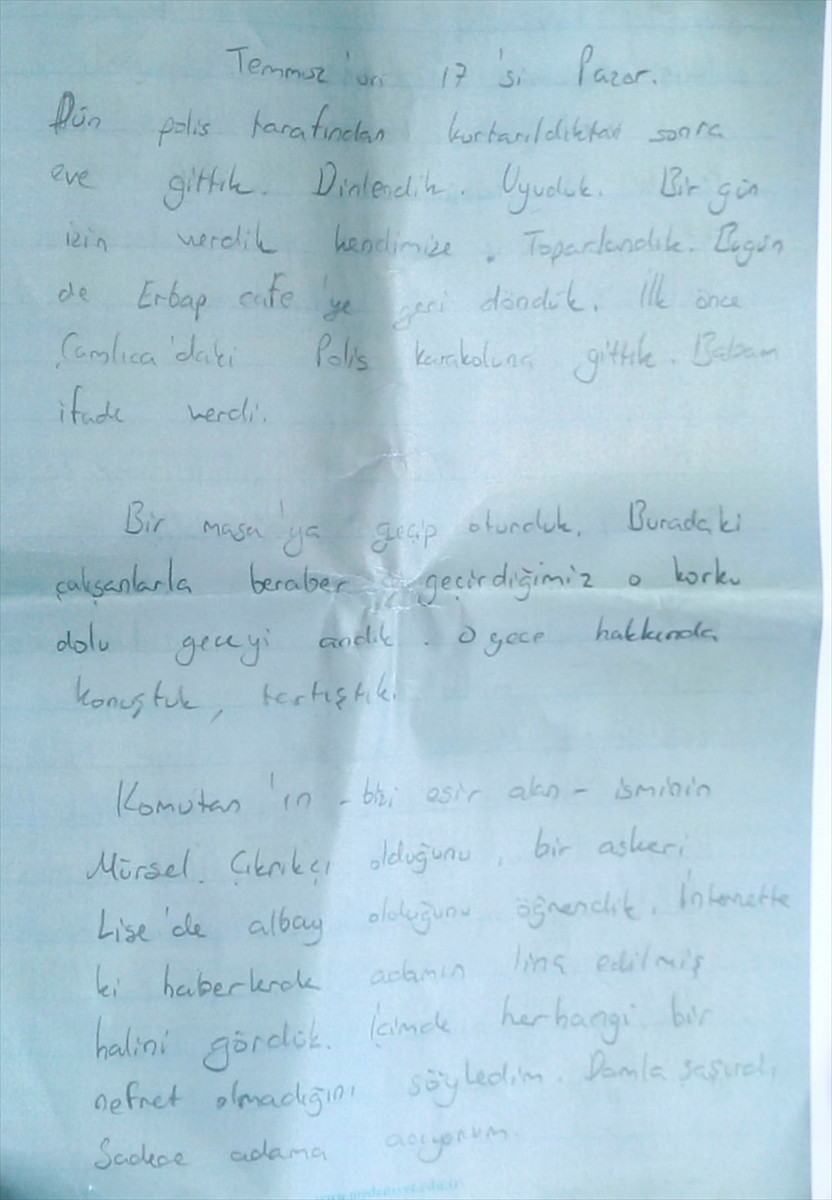 Temmuz'un 17'si Pazar.
Dün polis tarafından kurtarıldıktan sonra
eve gittik. Dinlendik. Uyuduk. Bir gün
izin verdik kendimize. Toparlandık. Bugün
de Erbap cafe'ye geri döndük. İlk önce
Çamlıca'daki Polis karakoluna gittik. Babam
ifade verdi.
Bir masa'ya geçip oturduk. Buradaki
çalışanlarla beraber geçirdiğimiz o korku
dolu geceyi andık. O gece hakkında
konuştuk, tartıştık.
Komutan'ın - bizi esir alan - isminin
Mürsel Çıkrıkçı olduğunu, bir askeri
Lise'de albay olduğunu öğrendik. İnternette
ki haberlerde adamın linç edilmiş
halini gördük. İçimde herhangi bir
nefret olmadığını söyledim. Damla şaşırdı.
Sadece adama acıyorum.